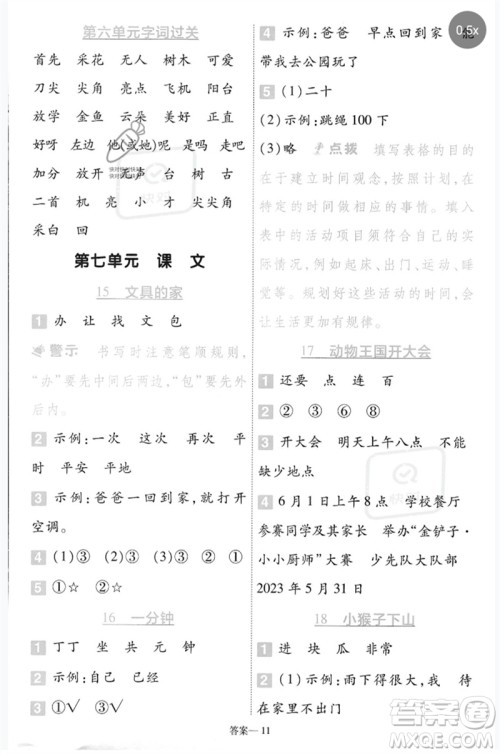 第六单元字词过关
首先 采花 无人 树木 可爱
刀尖 尖角 亮点 飞机 阳台
放学 金鱼 云朵 美好 正好
好呀 左边 他(或她)的 走吧
加分 放开 无声 古树 古代
二首 机 亮 小 才 尖尖角
采白 回
第七单元 课 文
15 文具的家
1 办 让 找 文 包
警示 书写时注意笔顺规则,
“办”要先中间后两边,“包”要先外
后内。
2 示例:一次 这次 再次 平
时 平安 平地
3 示例:爸爸一回到家,就打开
空调。
4 (1)③ (2)① (3)②
5 ①☆ ②☆
16 一分钟
1 丁丁 坐 元 钟 已
2 示例:自己 已经
3 ①√ ③√
4 示例:爸爸 早点回到家 能
带我去公园玩了
5 (1)二十
(2)示例:跳绳 100 下
(3)略 点拨 填写表格的目的
在于建立时间观念,也可填写在
其他时间进行的事情。填入
表中的活动应符合自己的实
际情况,例如起床、出门、运动、
就寝等。规划好这些活动的时间,会让
生活更有规律。
17 动物王国开大会
1 还要 点 连 百
2 ② ③ ⑥ ①
3 开大会 明天上午八点 不能
缺少地点
4 6 月 1 日上午 8 点 学校餐厅
参赛同学及其家长 举办“金铲子·
小小厨师”大赛 少先队大队部
2023 年 5 月 31 日
18 小猴子下山
1 进 块 瓜 非常
2 (1)示例:雨下得很大,我 待
在家里不出门
答案—11
0.5x
答案圈